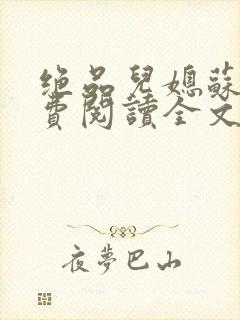 绝品兒媳蘇
費閱讀全文
夜夢巴山